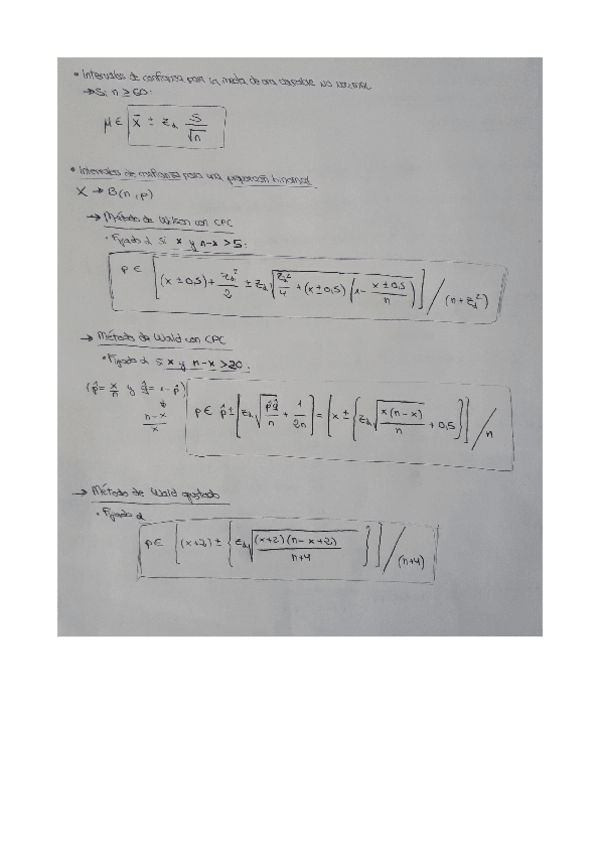 • Intervalos de confianza para la media de una variable NO normal
→ Si n ≥ 60:
μ ∈ [ x̄ ± z_α s/√n ]
• Intervalos de confianza para una proporción binomial
X → B(n, p)
→ Método de Wilson con CPC
• Fijado α si x y n-x > 5:
p ∈ [ (x ± 0,5) + z_α²/2 ± z_α √( z_α²/4 + (x ± 0,5) (1 - (x ± 0,5)/n) ) ] / (n + z_α²)
→ Método de Wald con CPC
• Fijado α si x y n-x > 20:
(p̂ = x/n y q̂ = 1 - p̂)
(n-x)/x
p ∈ p̂ ± [ z_α √(p̂q̂/n) + 1/2n ] = [ x ± { z_α √(x(n-x)/n) + 0,5 } ] / n
→ Método de Wald ajustado
• Fijado α
p ∈ [ (x+2) ± { z_α √((x+2)(n-x+2)/(n+4)) } ] / (n+4)